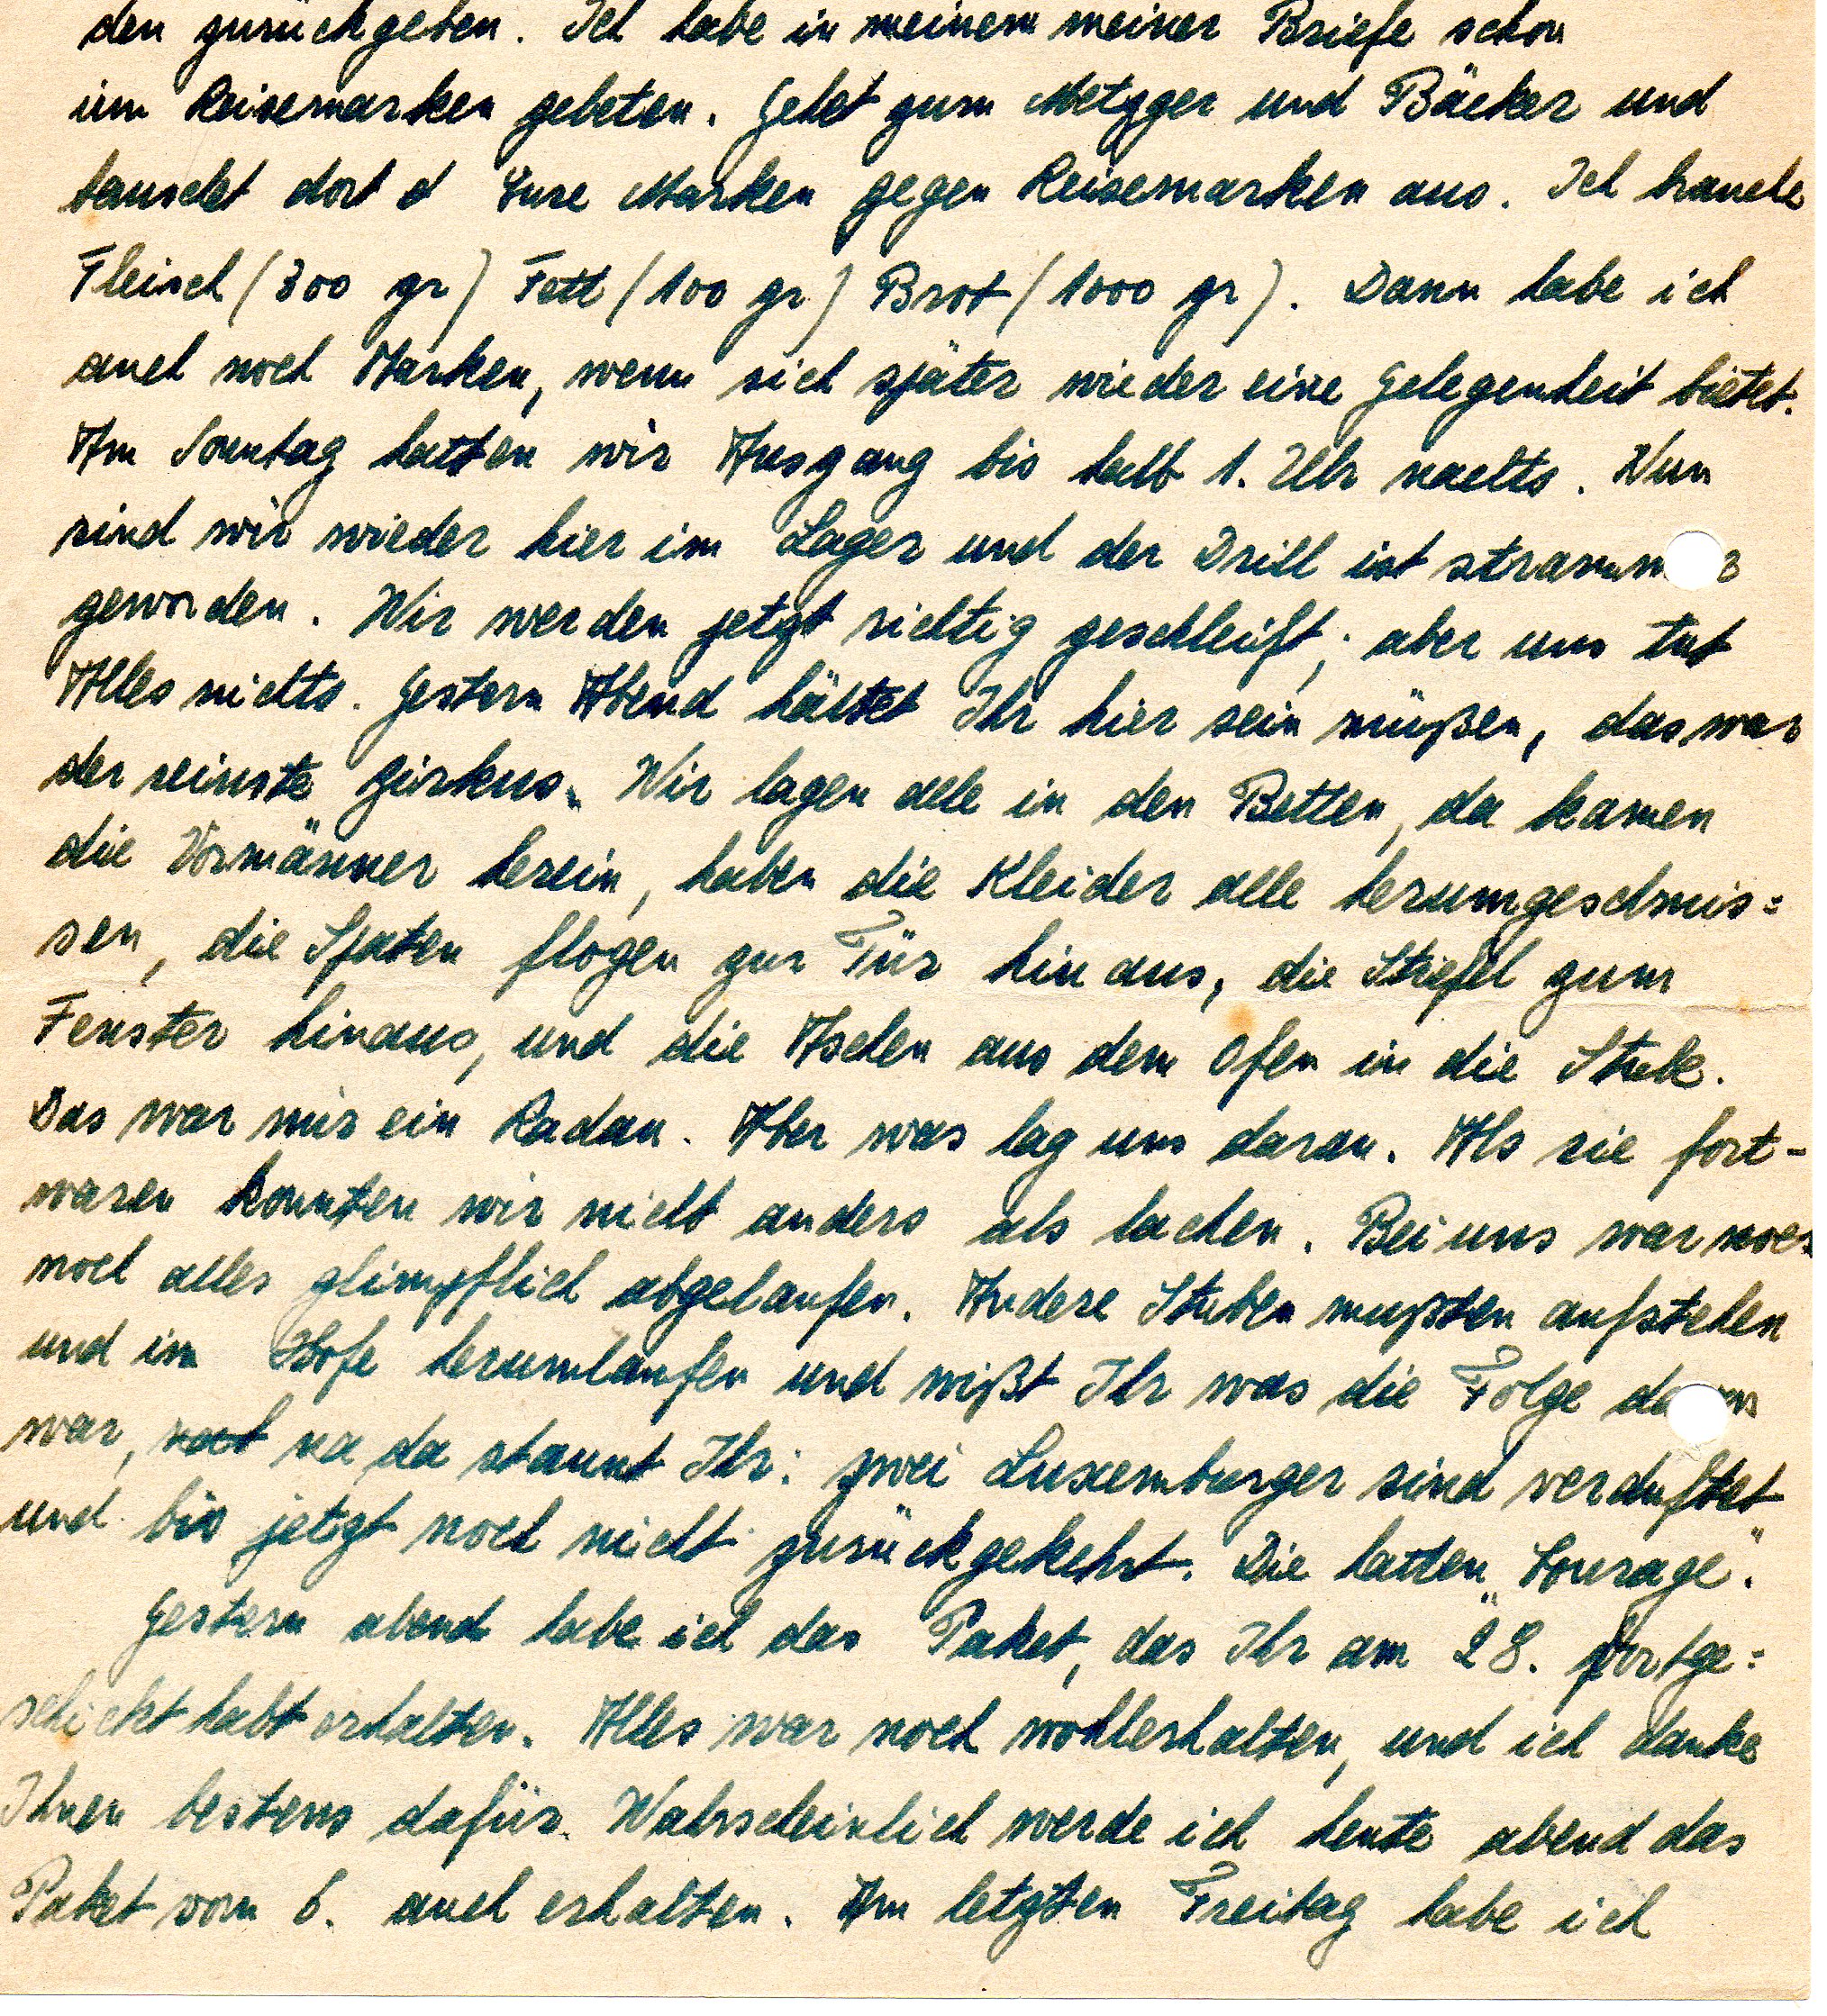 den zurückgeben. Ich habe in meinem meiner Briefe schon
um Reisemarken gebeten. Gehet zum Metzger und Bäcker und
tauschet dort d Eure Marken gegen Reisemarken aus. Ich brauche
Fleisch (300 gr) Fett (100 gr) Brot (1000 gr). Dann habe ich
auch noch Marken, wenn sich später wieder eine Gelegenheit bietet.
Am Sonntag hatten wir Ausgang bis halb 1. Uhr nachts. Nun
sind wir wieder hier im Lager und der Drill ist strammer
geworden. Wir werden jetzt richtig geschleift; aber uns tut
Alles nichts. Gestern Abend hättet Ihr hier sein müßen, das war
der reinste Zirkus. Wir lagen alle in den Betten, da kamen
die Vormänner herein, haben die Kleider alle herumgeschmis=
sen, die Spaten flogen zur Tür hinaus, die Stiefel zum
Fenster hinaus, und die Aschen aus dem Ofen in die Stube.
Das war mir ein Radau. Aber was lag uns daran. Als sie fort-
waren konnten wir nicht anders als lachen. Bei uns war noch
noch alles glimpflich abgelaufen. Andere Stuben mußten aufstehen
und im Hofe herumlaufen und wißt Ihr was die Folge davon
war, na da staunt Ihr: zwei Luxemburger sind verduftet
und bis jetzt noch nicht zurückgekehrt. Die hatten „Courage".
Gestern abend habe ich das Paket, das Ihr am 28. fortge=
schickt habt erhalten. Alles war noch wohlerhalten, und ich danke
Ihnen bestens dafür. Wahrscheinlich werde ich heute abend das
Paket vom 6. auch erhalten. Am letzten Freitag habe ich